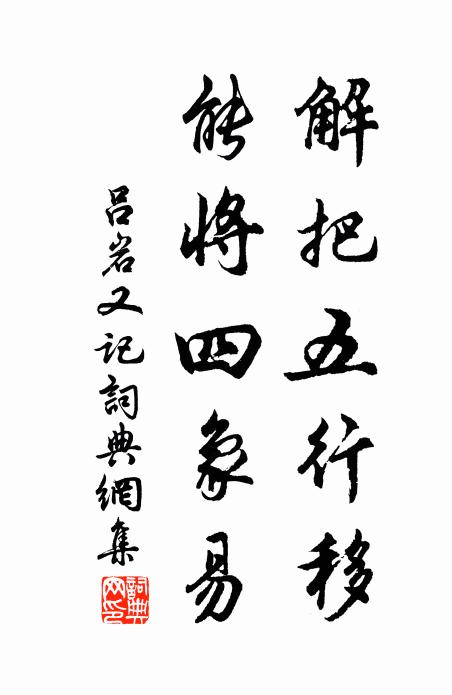 解把五行移
能将四象易
吕岩又记詞典網集
詞典網印